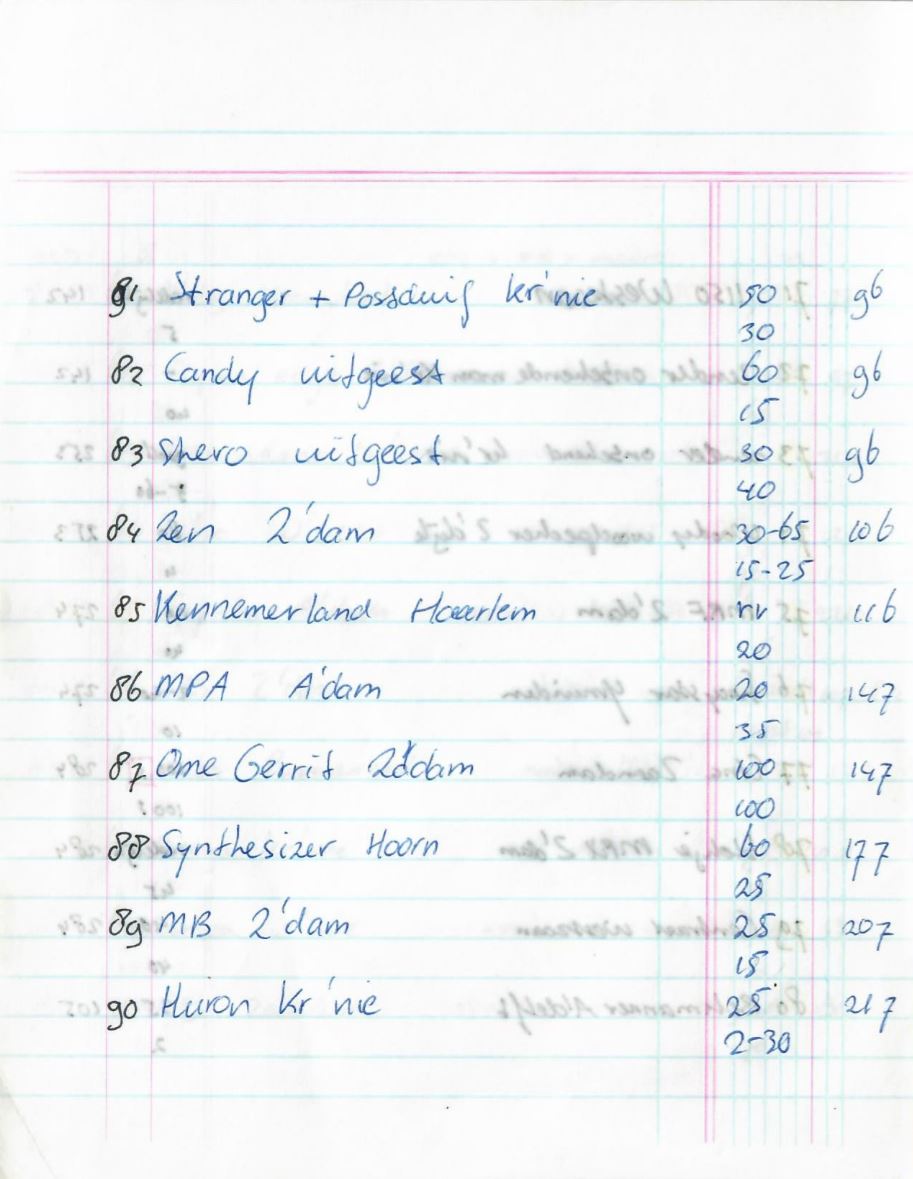 81 Stranger + Possduif kr'nie 50 96
30
82 Candy uitgeest 60 96
15
83 Shero uitgeest 30 96
40
84 Zen Z'dam 30-65 106
15-25
85 Kennemerland Haarlem rv 116
20
86 MPA A'dam 20 147
35
87 Ome Gerrit Z'dam 100 147
100
88 Synthesizer Hoorn 60 177
25
89 MB Z'dam 25 207
15
90 Huron Kr'nie 25 217
2-30